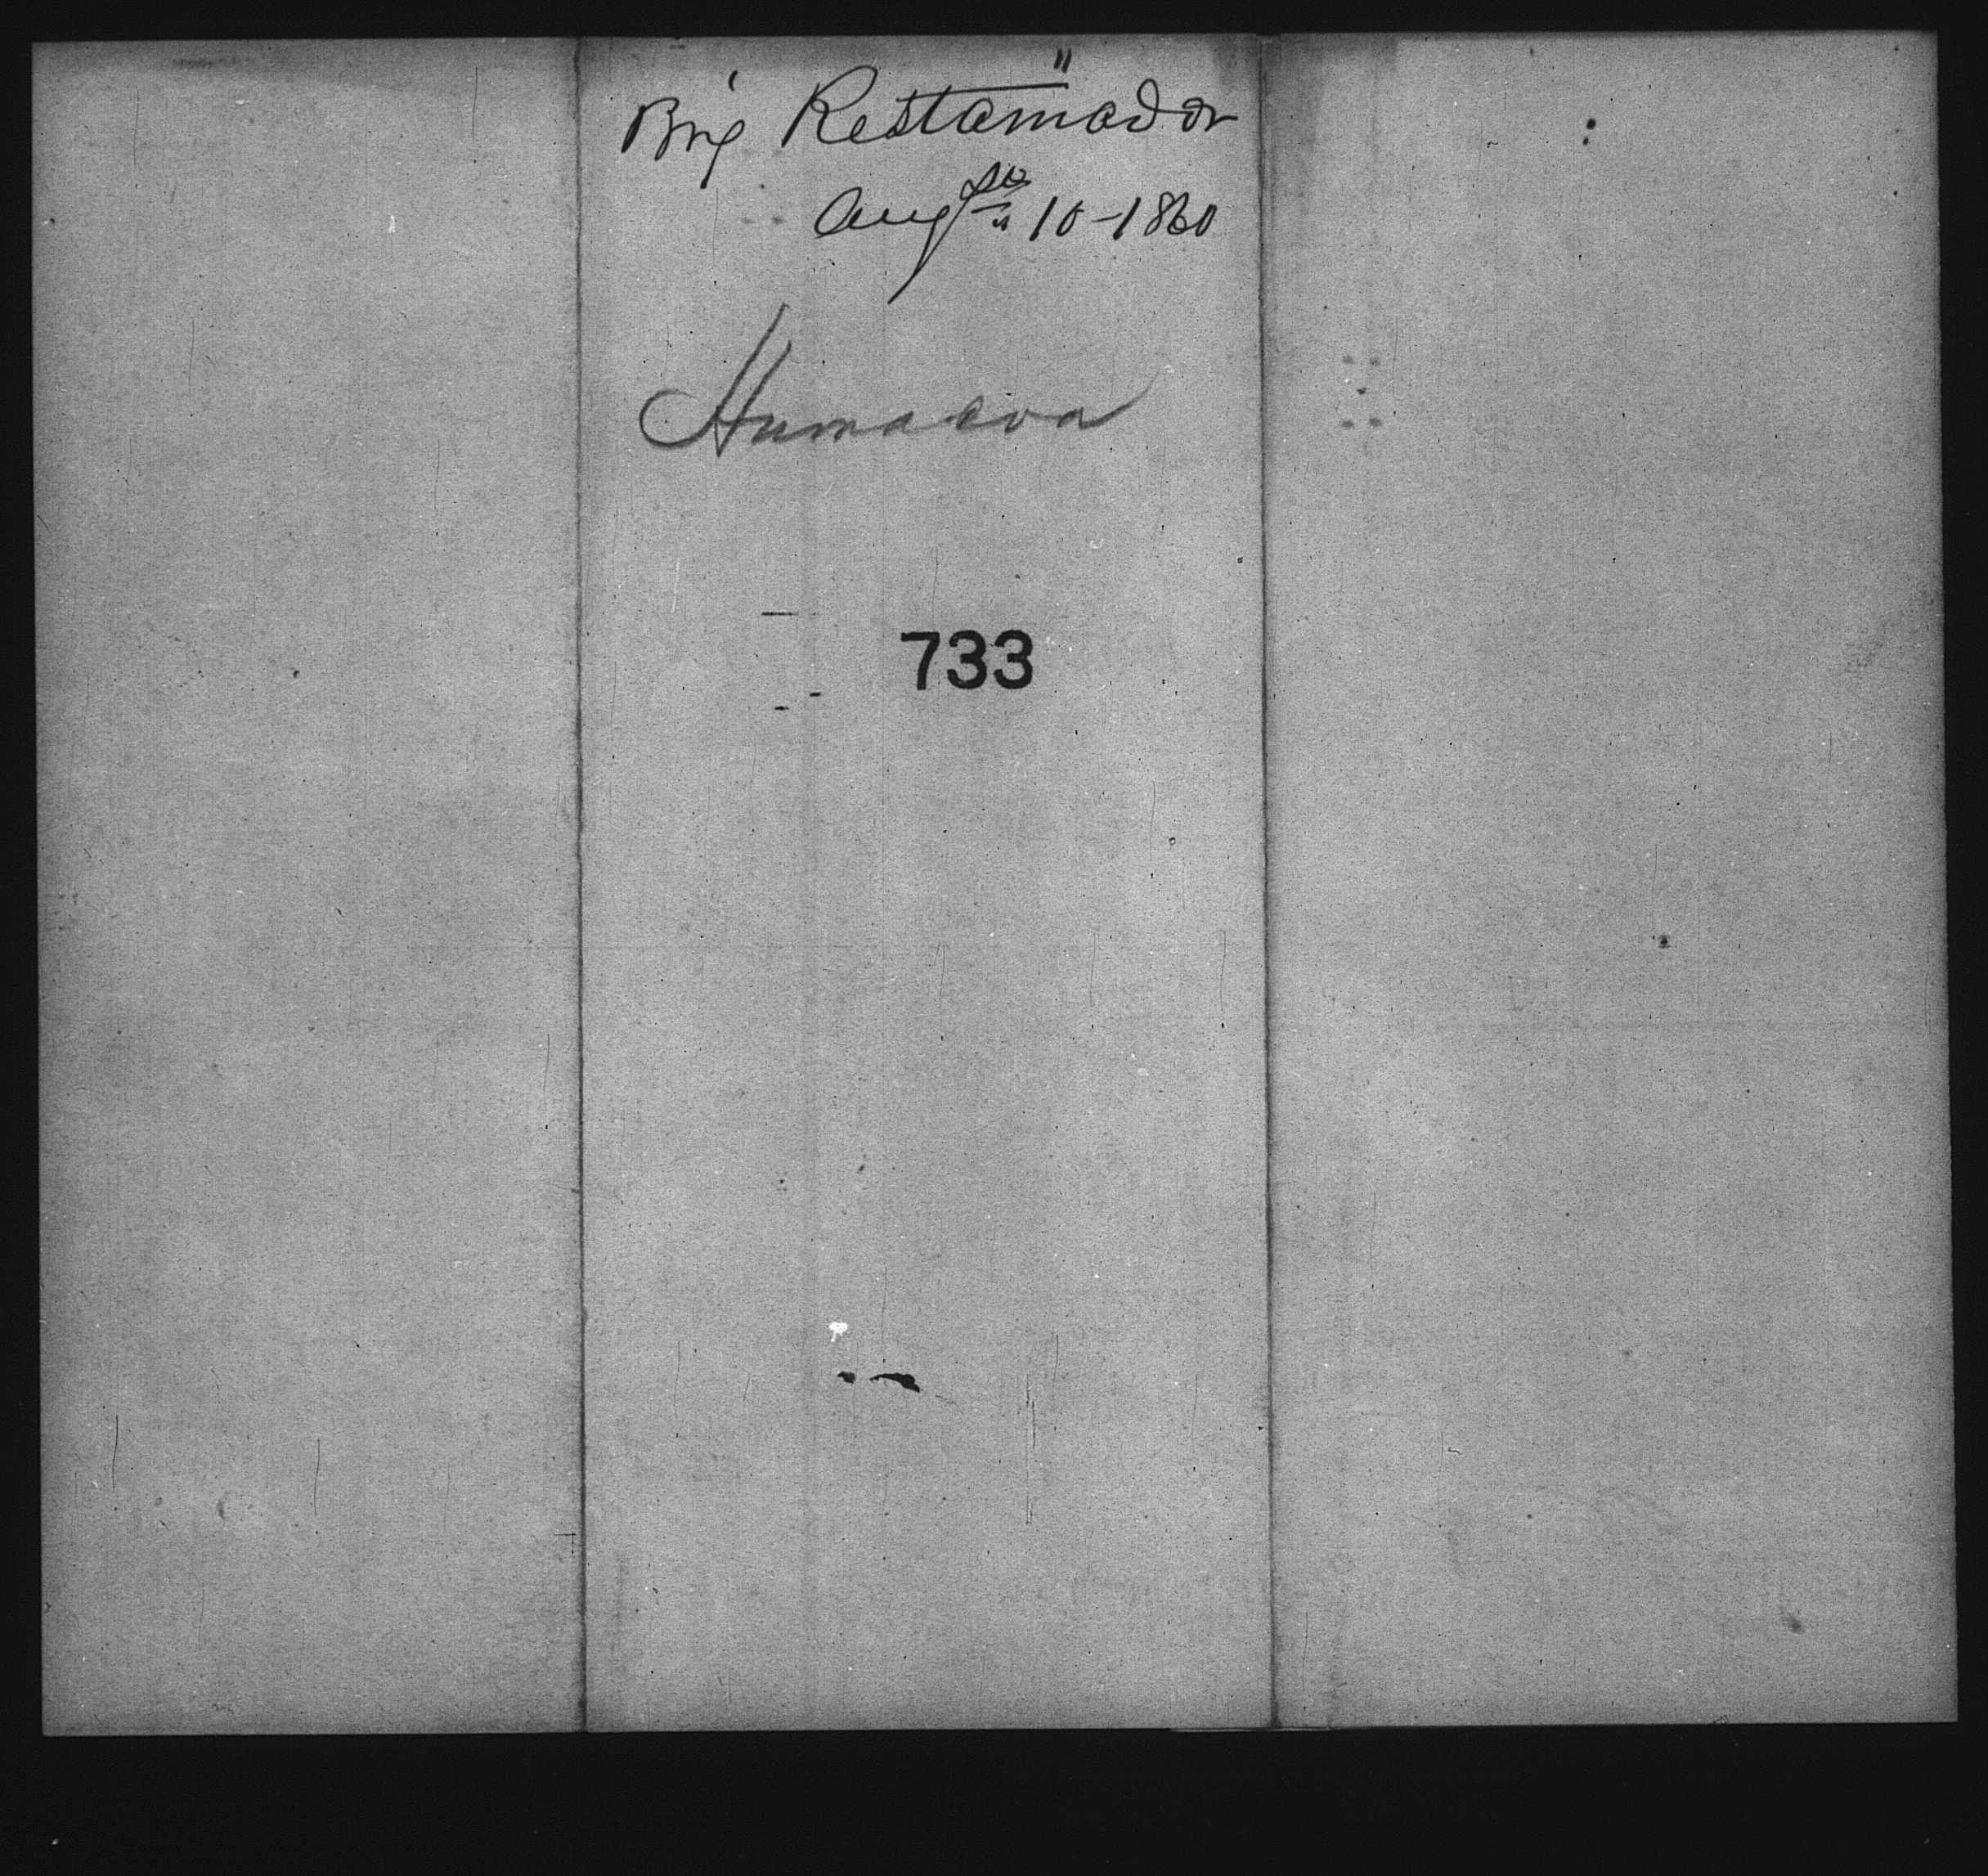 Brig Restamador
Augto 10-1860
Humacoa
733